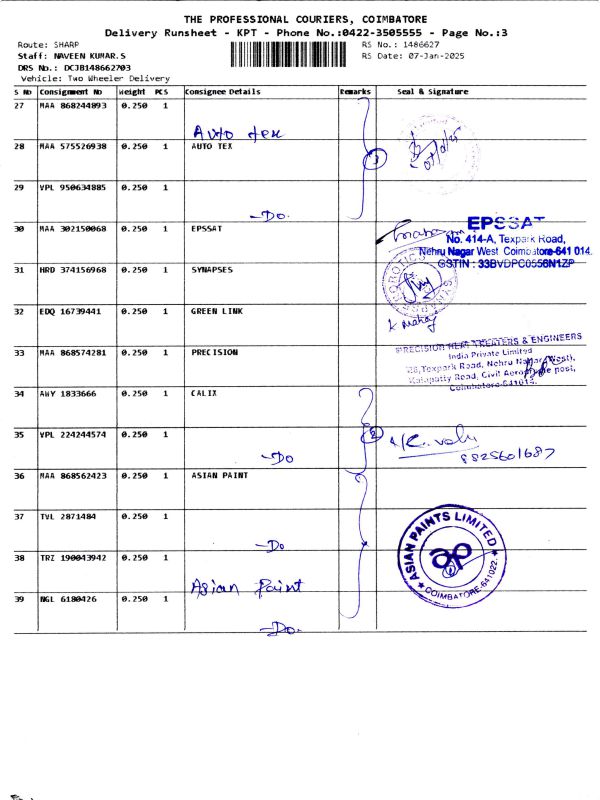 THE PROFESSIONAL COURIERS, COIMBATORE
Delivery Runsheet - KPT - Phone No.:0422-3505555 - Page No.:3
Route: SHARP
RS No.: 1486627
Staff: NAVEEN KUMAR.S
RS Date: 07-Jan-2025
DRS No.: DCJB148662703
Vehicle: Two Wheeler Delivery
S No Consignment No Weight PCS Consignee Details Remarks Seal & Signature
27 MAA 868244893 0.250 1
Auto tex
28 MAA 575526938 0.250 1 AUTO TEX
3
29 VPL 950634885 0.250 1
-Do.
30 MAA 302150068 0.250 1 EPSSAT
EPSSAT
No. 414-A, Texpark Road,
Nehru Nagar West, Coimbatore-641 014.
GSTIN : 33BVDPC0556N1ZP
31 HRD 374156968 0.250 1 SYNAPSES
ROBOTICS
32 EDQ 16739441 0.250 1 GREEN LINK
33 MAA 868574281 0.250 1 PRECISION
PRECISION HEAT TREATERS & ENGINEERS
India Private Limited
Texpark Road, Nehru Nagar (West),
Kalapatty Road, Civil Aerodrome post,
Coimbatore-641014.
34 AWY 1833666 0.250 1 CALIX
35 VPL 224244574 0.250 1
2
-Do
8825601687
36 MAA 868562423 0.250 1 ASIAN PAINT
37 TVL 2871484 0.250 1
-Do
ASIAN PAINTS LIMITED
ap
COIMBATORE-641022.
38 TRZ 190043942 0.250 1
Asian Paint
39 NGL 6180426 0.250 1
-Do.